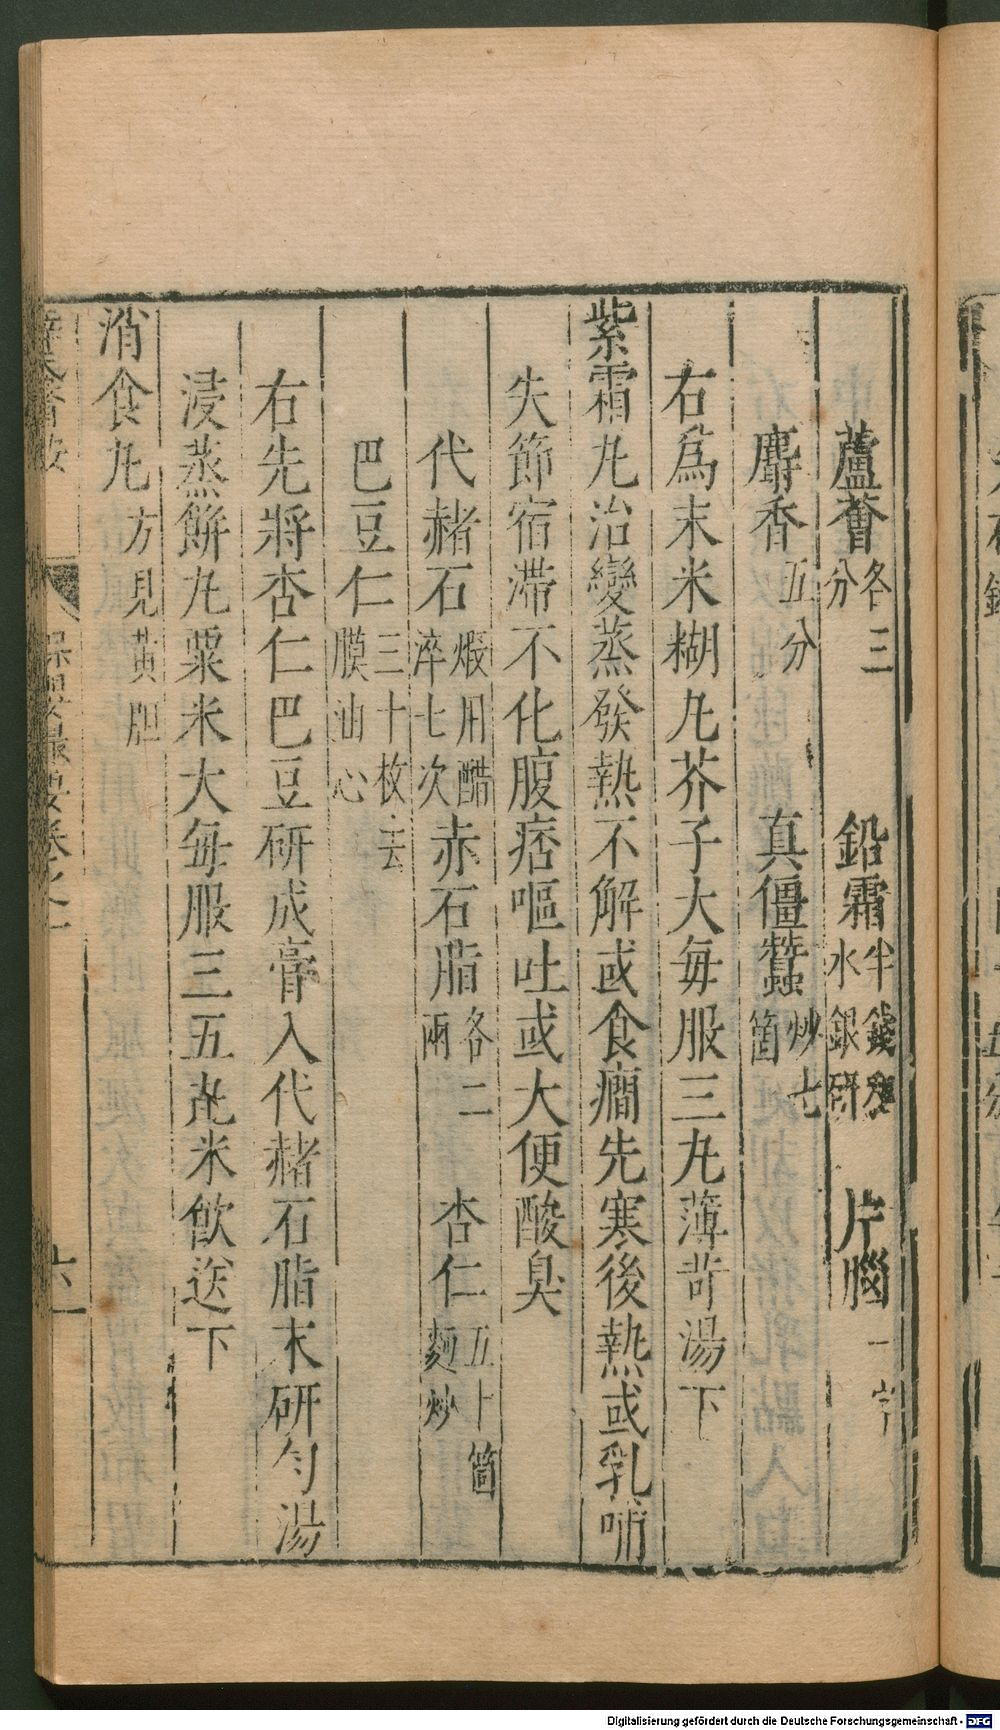 蘆薈各三分 鉛霜半錢水銀研 片腦一字
麝香五分 真僵蠶炒七箇
右為末米糊丸芥子大每服三丸薄苛湯下
紫霜丸治變蒸發熱不解或食癇先寒後熱或乳哺
失節宿滯不化腹痞嘔吐或大便酸臭
代赭石煅用醋淬七次 赤石脂各二兩 杏仁五十箇麪炒
巴豆仁三十枚去膜油心
右先將杏仁巴豆研成膏入代赭石脂末研勻湯
浸蒸餅丸粟米大每服三五丸米飲送下
消食丸方見黃胆
保嬰最要卷之一
六一
Digitalisierung gefördert durch die Deutsche Forschungsgemeinschaft - DFG